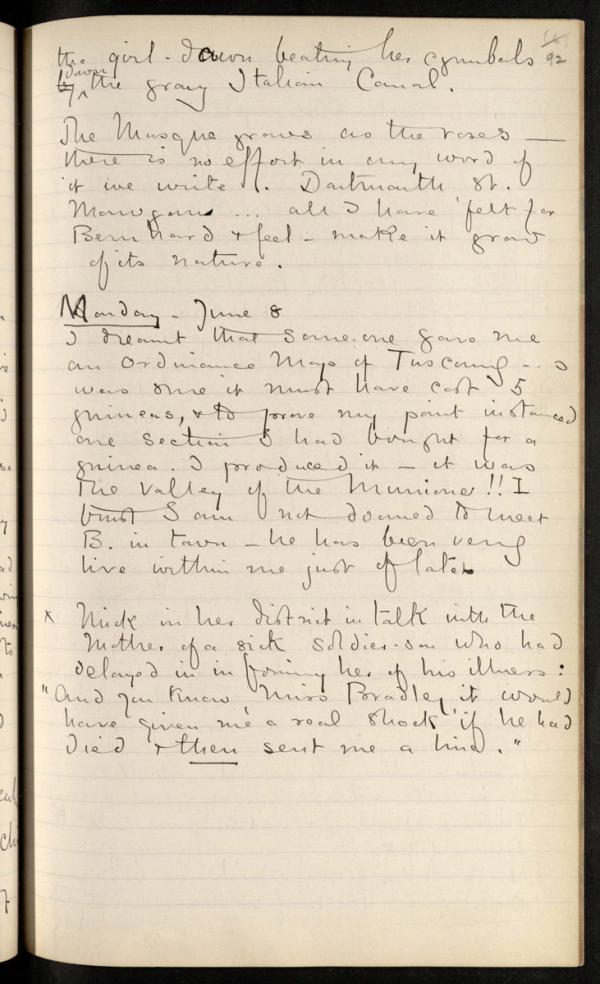 the girl-dawn beating her cymbals 92
by down the gray Italian Canal.
The Masque grows as the roses —
there is no effort in any word of
it we write. Dartmouth St.
... all I have felt for
Bernhard & feel - make it grow
of its nature.
Monday - June 8
I dreamt that some-one gave me
an Ordinance Map of Tuscany - I
was sure it must have cost 5
guineas, & to prove my point instanced
one section I had bought for a
guinea. I produced it — it was
the Valley of the Mugnone!! I
trust I am not doomed to meet
B. in town — he has been very
live within me just of late.
x Mick in her district in talk with the
Mother of a sick soldier-son who had
delayed in informing her of his illness:
"And you know Miss Bradley it would
have given me a real shock if he had
died & then sent me a line."